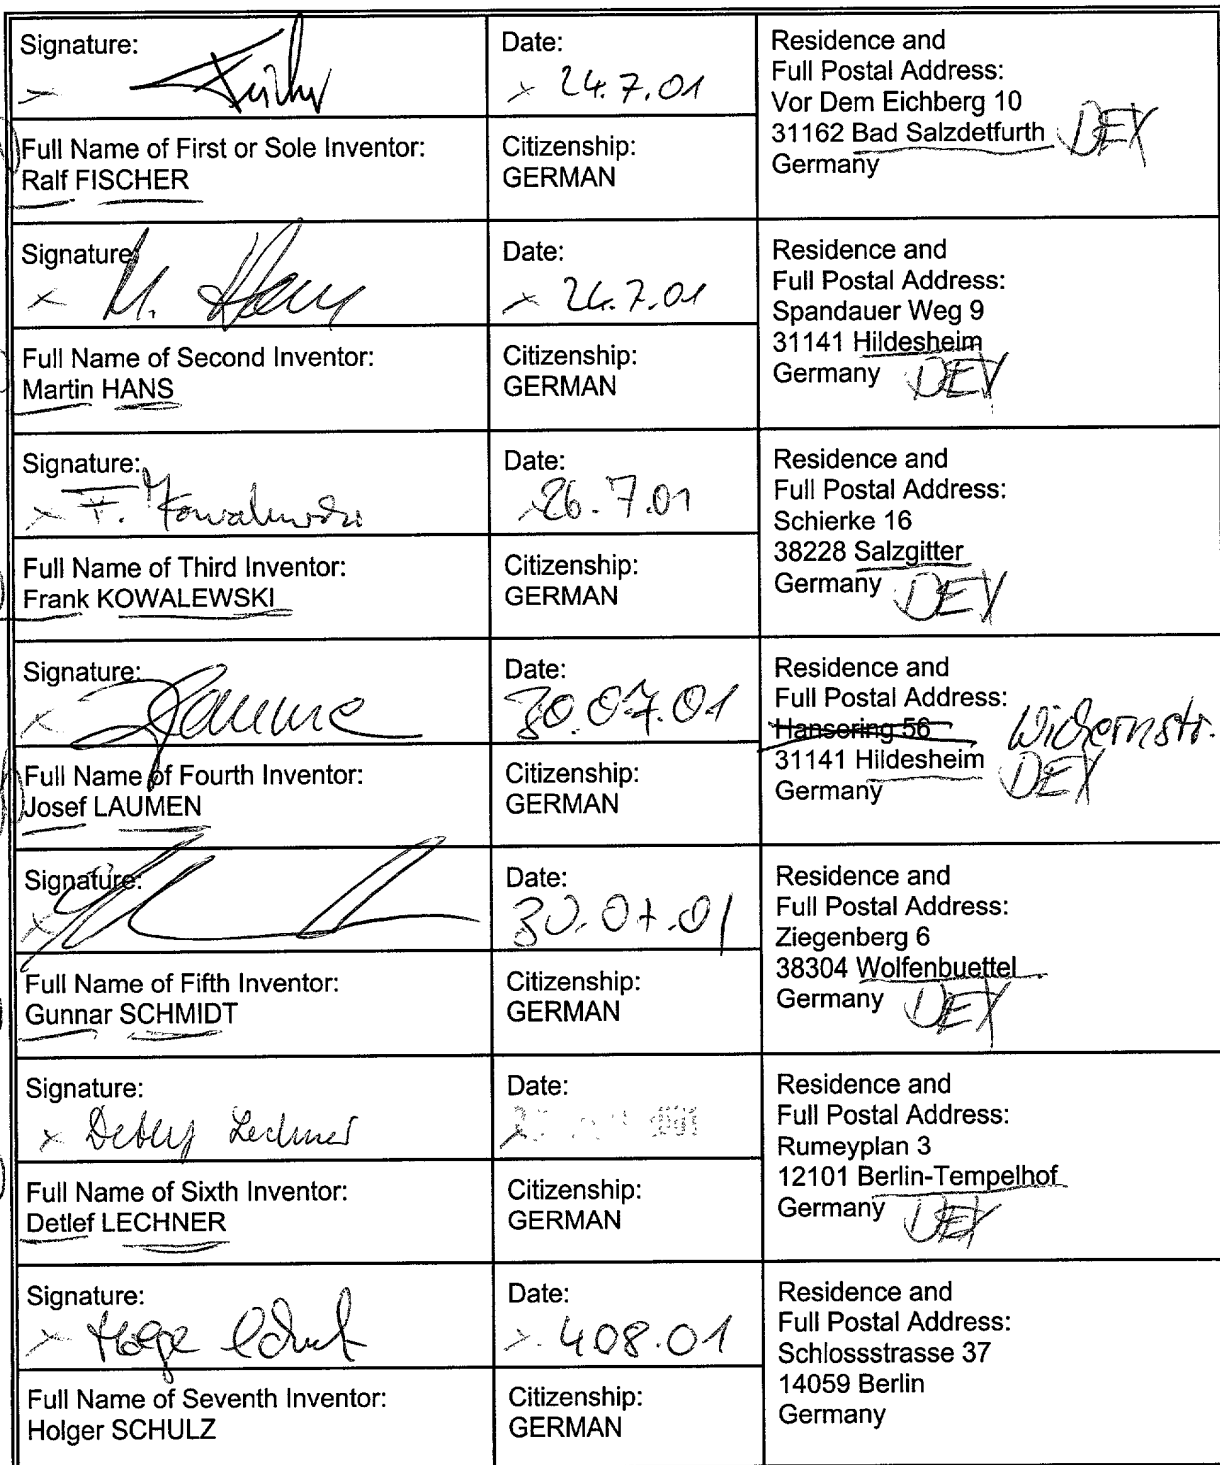 Signature:
Date:
24.7.01
Residence and
Full Postal Address:
Vor Dem Eichberg 10
31162 Bad Salzdetfurth DEX
Germany
Full Name of First or Sole Inventor:
Ralf FISCHER
Citizenship:
GERMAN
Signature:
M. Hans
Date:
24.7.01
Residence and
Full Postal Address:
Spandauer Weg 9
31141 Hildesheim
Germany DEX
Full Name of Second Inventor:
Martin HANS
Citizenship:
GERMAN
Signature:
F. Kowalewski
Date:
26.7.01
Residence and
Full Postal Address:
Schierke 16
38228 Salzgitter
Germany DEX
Full Name of Third Inventor:
Frank KOWALEWSKI
Citizenship:
GERMAN
Signature:
Laumen
Date:
30.07.01
Residence and
Full Postal Address:
Hansering 56 Wichernstr.
31141 Hildesheim DEX
Germany
Full Name of Fourth Inventor:
Josef LAUMEN
Citizenship:
GERMAN
Signature:
Date:
30.07.01
Residence and
Full Postal Address:
Ziegenberg 6
38304 Wolfenbuettel
Germany DEX
Full Name of Fifth Inventor:
Gunnar SCHMIDT
Citizenship:
GERMAN
Signature:
Detlef Lechner
Date:
Residence and
Full Postal Address:
Rumeyplan 3
12101 Berlin-Tempelhof
Germany DEX
Full Name of Sixth Inventor:
Detlef LECHNER
Citizenship:
GERMAN
Signature:
Holger Schulz
Date:
408.01
Residence and
Full Postal Address:
Schlossstrasse 37
14059 Berlin
Germany
Full Name of Seventh Inventor:
Holger SCHULZ
Citizenship:
GERMAN